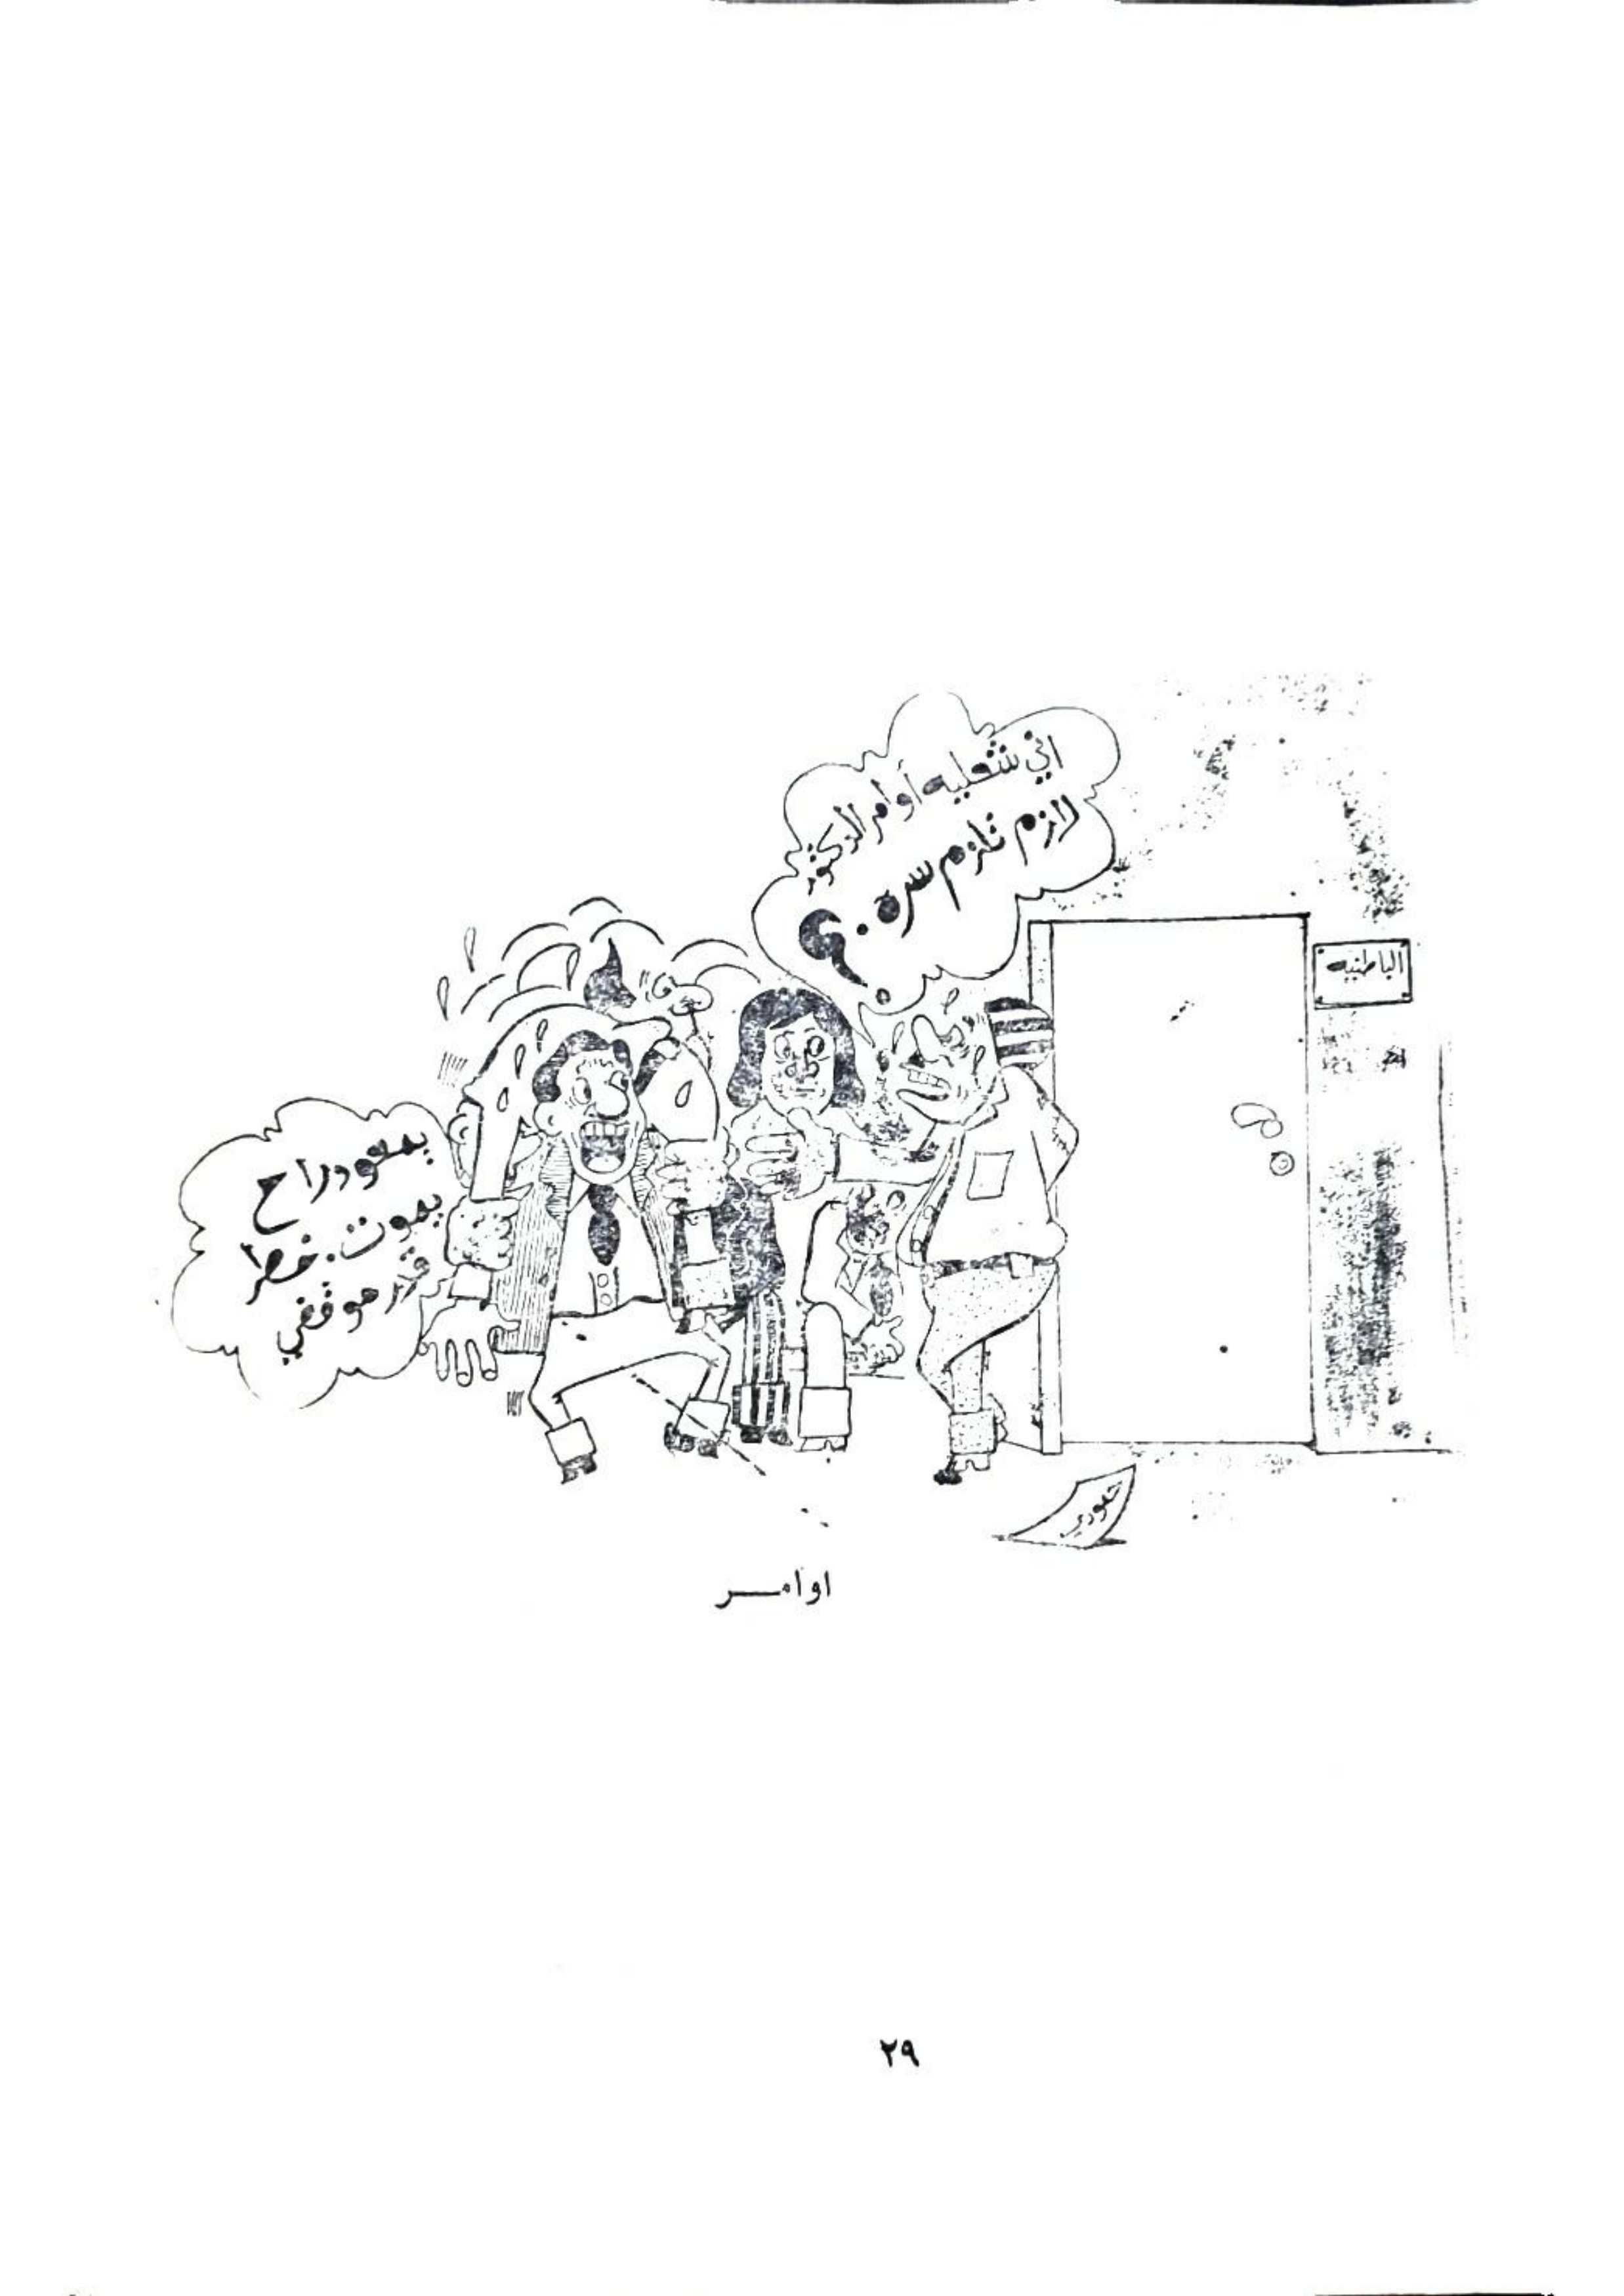 اني شعليه أوامر الدكتور
لازم تلزم سره.؟
الباطنيه
يمعود راح
يموت. خطرا
قدر موقفي
حمودي
اوامر
٢٩